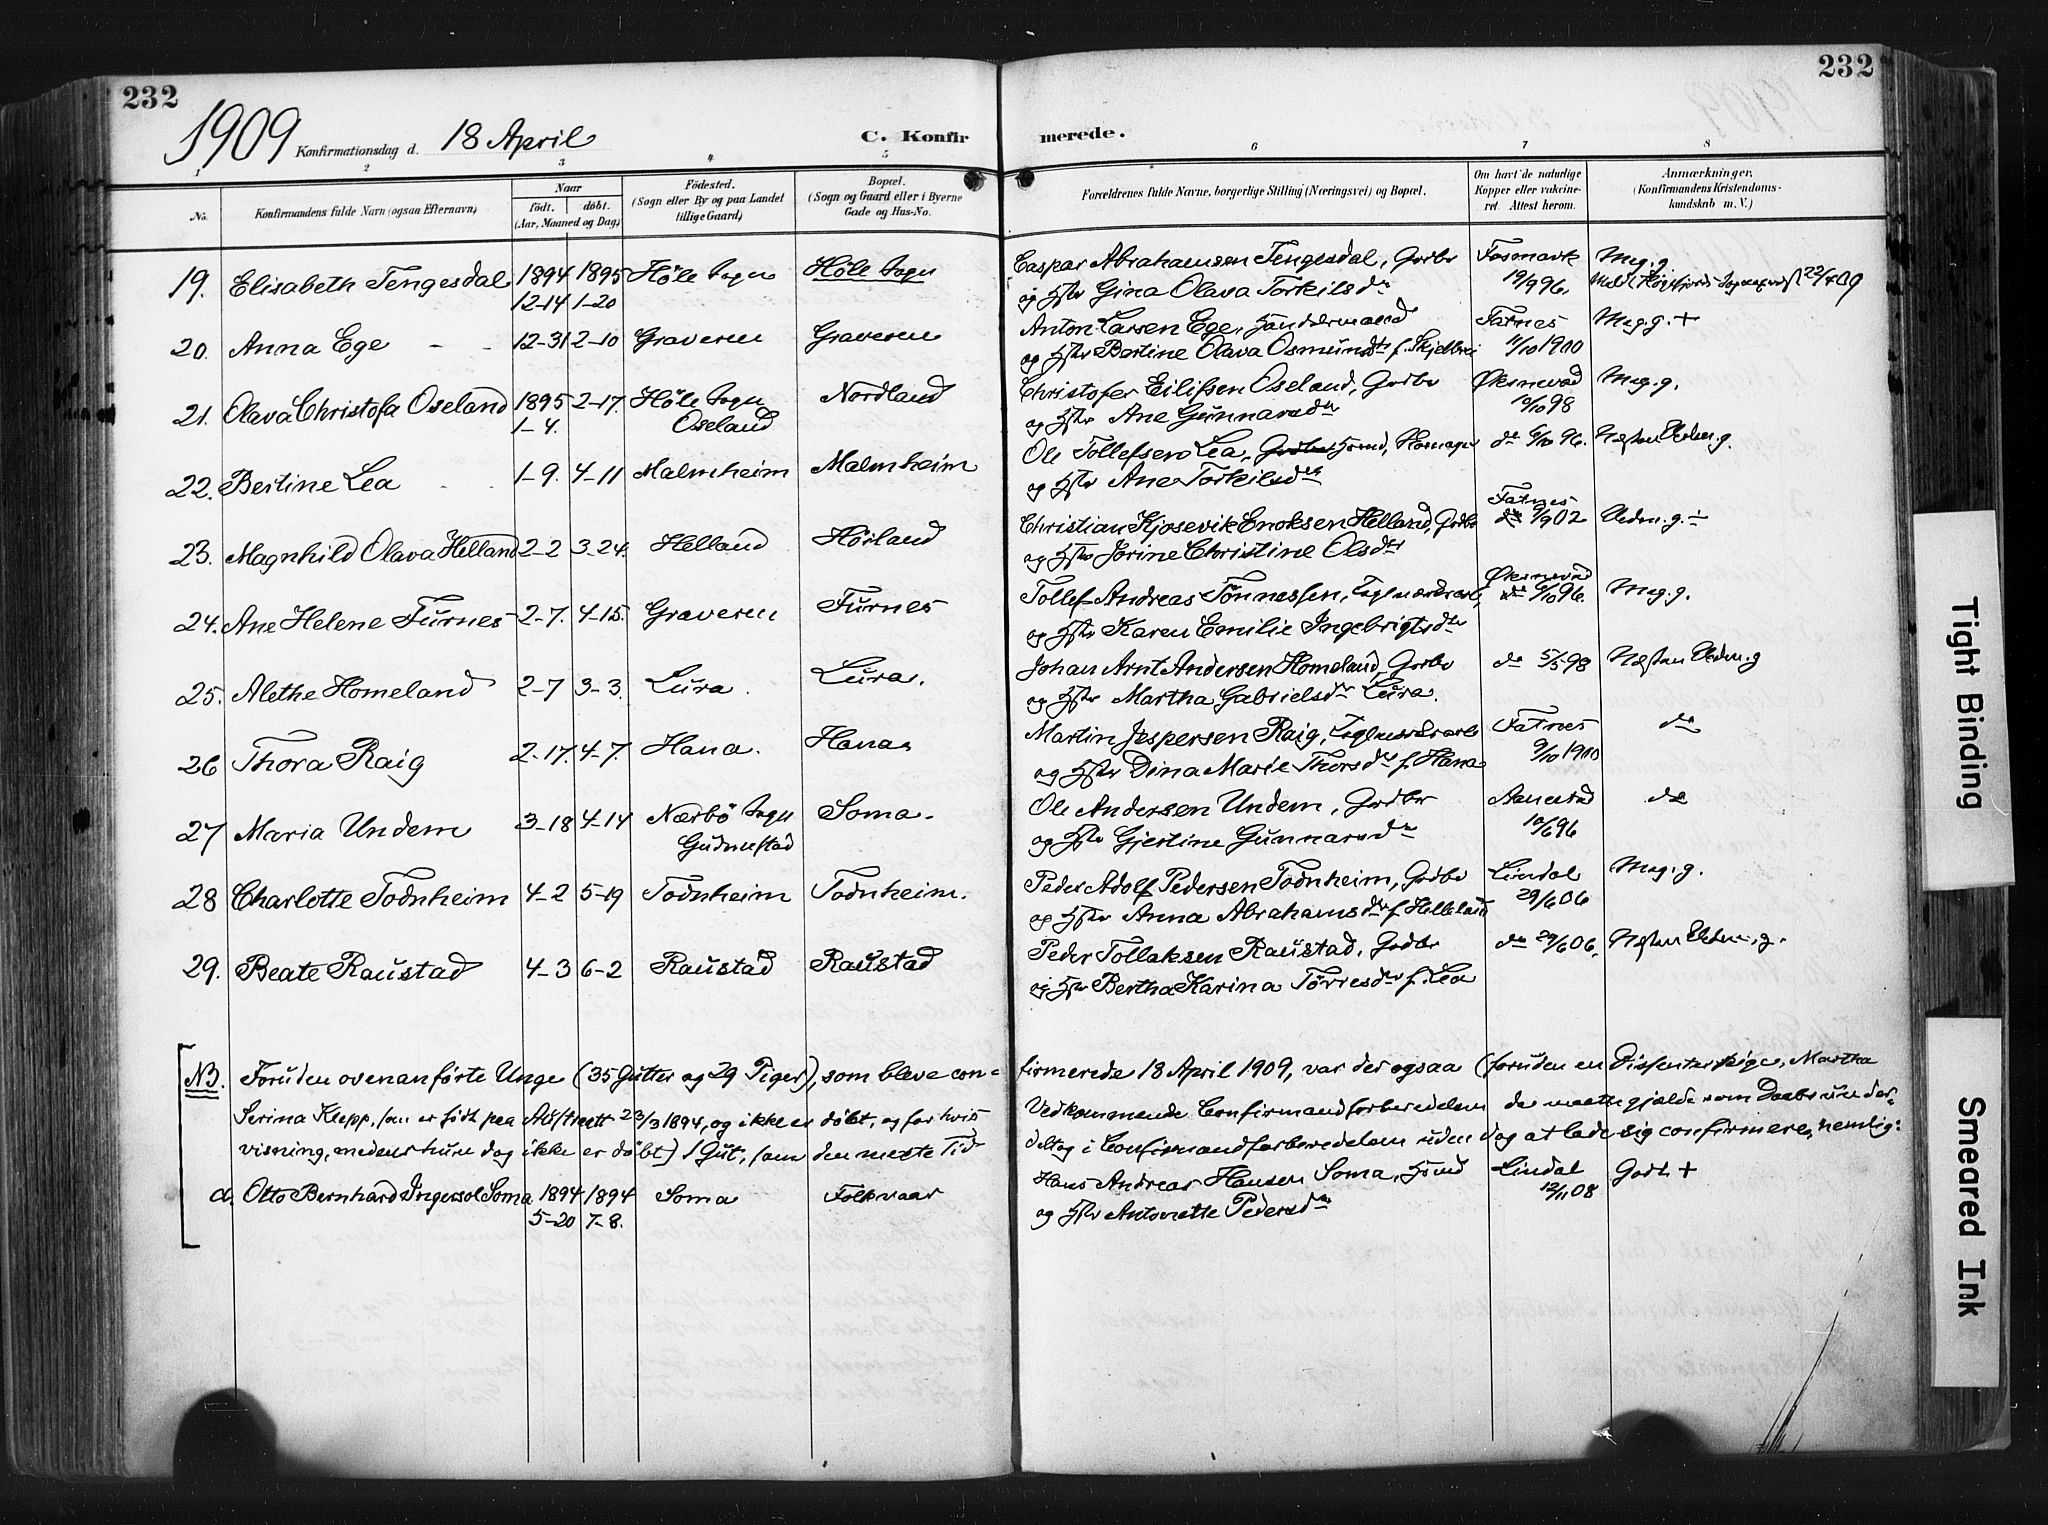 232
232
1909 Konfirmationsdag d. 18 April
C. Konfirmerede.
1 2 3 4 5 6 7 8
No.
Konfirmandens fulde Navn (ogsaa Efternavn)
Naar
født. døbt.
(Aar, Maaned og Dag)
Fødested.
(Sogn eller By og paa Landet
tillige Gaard)
Bopæl.
(Sogn og Gaard eller i Byerne
Gade og Hus-No.
Forældrenes fulde Navne, borgerlige Stilling (Næringsvei) og Bopæl.
Om havt de naturlige
Kopper eller vakcine-
ret. Attest herom.
Anmærkninger,
(Konfirmandens Kristendoms-
kundskab m. V.)
19. Elisabeth Tengesdal 1894 1895 Höle Sogn Höle Sogn Caspar Abrahamsen Tengesdal, Gårdbr Meg. g.
12-14 1-20 og Hstr Gina Olava Torkilsdtr 19/9 96.
20. Anna Ege 12-31 2-10 Graveren Graveren Anton Larsen Ege, Fatnes Meg. g. +
og Hstr Bertine Olava Osmundsdtr f. 11/10 1900
21. Olava Christofa Oseland 1895 2-17. Höle Sogn Nordland Christofer Eilifsen Oseland, Gårdbr Øksnevad Meg. g.
1-4. Oseland og Hstr Ane Gunnarsdtr 10/10 98
22. Bertine Lea 1-9. 4-11 Malmheim Malmheim Ole Tollefsen Lea, do 6/10 96. Næsten Udm. g.
og Hstr Ane Torkilsdtr
23. Magnhild Olava Helland 2-2 3-24. Helland Hörland Christian Kjosevik Enoksen Helland, Gårdbr Fatnes Udm. g. ÷
og Hstr Jorine Christine Olsdtr
24. Ane Helene Furnes 2-7. 4-15. Graveren Furnes Tollef Andreas Tönnessen, Øksnevad 6/10 96. Meg. g.
og Hstr Karen Emilie Ingebrigtsdtr
25. Alethe Homeland 2-7 3-3. Lura. Lura. Johan Arnt Andersen Homeland, Gårdbr do 5/5 98 Næsten Udm. g
og Hstr Martha Gabrielsdtr Lura.
26 Thora Raig 2-17. 4-7. Hana. Hana Martin Jespersen Raig, Fatnes do
og Hstr Dina Marie Thorsdtr f. Hana 9/10 1900
27 Maria Undem 3-18 4-14 Nærbö Sogn Soma. Ole Andersen Undem, Gårdbr do
Gudmestad og Hstr Gjertine Gunnarsdtr 10/6 96
28 Charlotte Todnheim 4-2 5-19 Todnheim Todnheim. Peder Adolf Pedersen Todnheim, Gårdbr Lindal Meg. g.
og Hstr Anna Abrahamsdtr f. Helleland 29/6 06
29. Beate Raustad 4-3 6-2 Raustad Raustad Peder Tollaksen Raustad, Gårdbr do 29/6 06. Næsten Udm. g.
og Hstr Bertha Karina Törresdtr f. Lea
NB. Foruden ovenanførte Unge (35 Gutter og 29 Piger), som bleve con-
firmerede 18 April 1909, var der ogsaa (foruden en Dissenterpige, Martha
Serina Klepp, som er født paa 23/3 1894, og ikke er døbt, og for hvis
Vedkommende Confirmandforberedelsen da maatte gjælde som Daabsunder-
visning, medens hun dog ikke er døbt) 1 Gut, som den meste Tid
deltog i Confirmandforberedelsen uden dog at lade sig confirmere, nemlig:
d. Otto Bernhard Ingersol Soma 1894 1894 Soma Folkvaar Hans Andreas Hansen Soma, Lindal Godt +
5-20 7-8. og Hstr Antonette Pedersdtr 12/11 08
Tight Binding
Smeared Ink